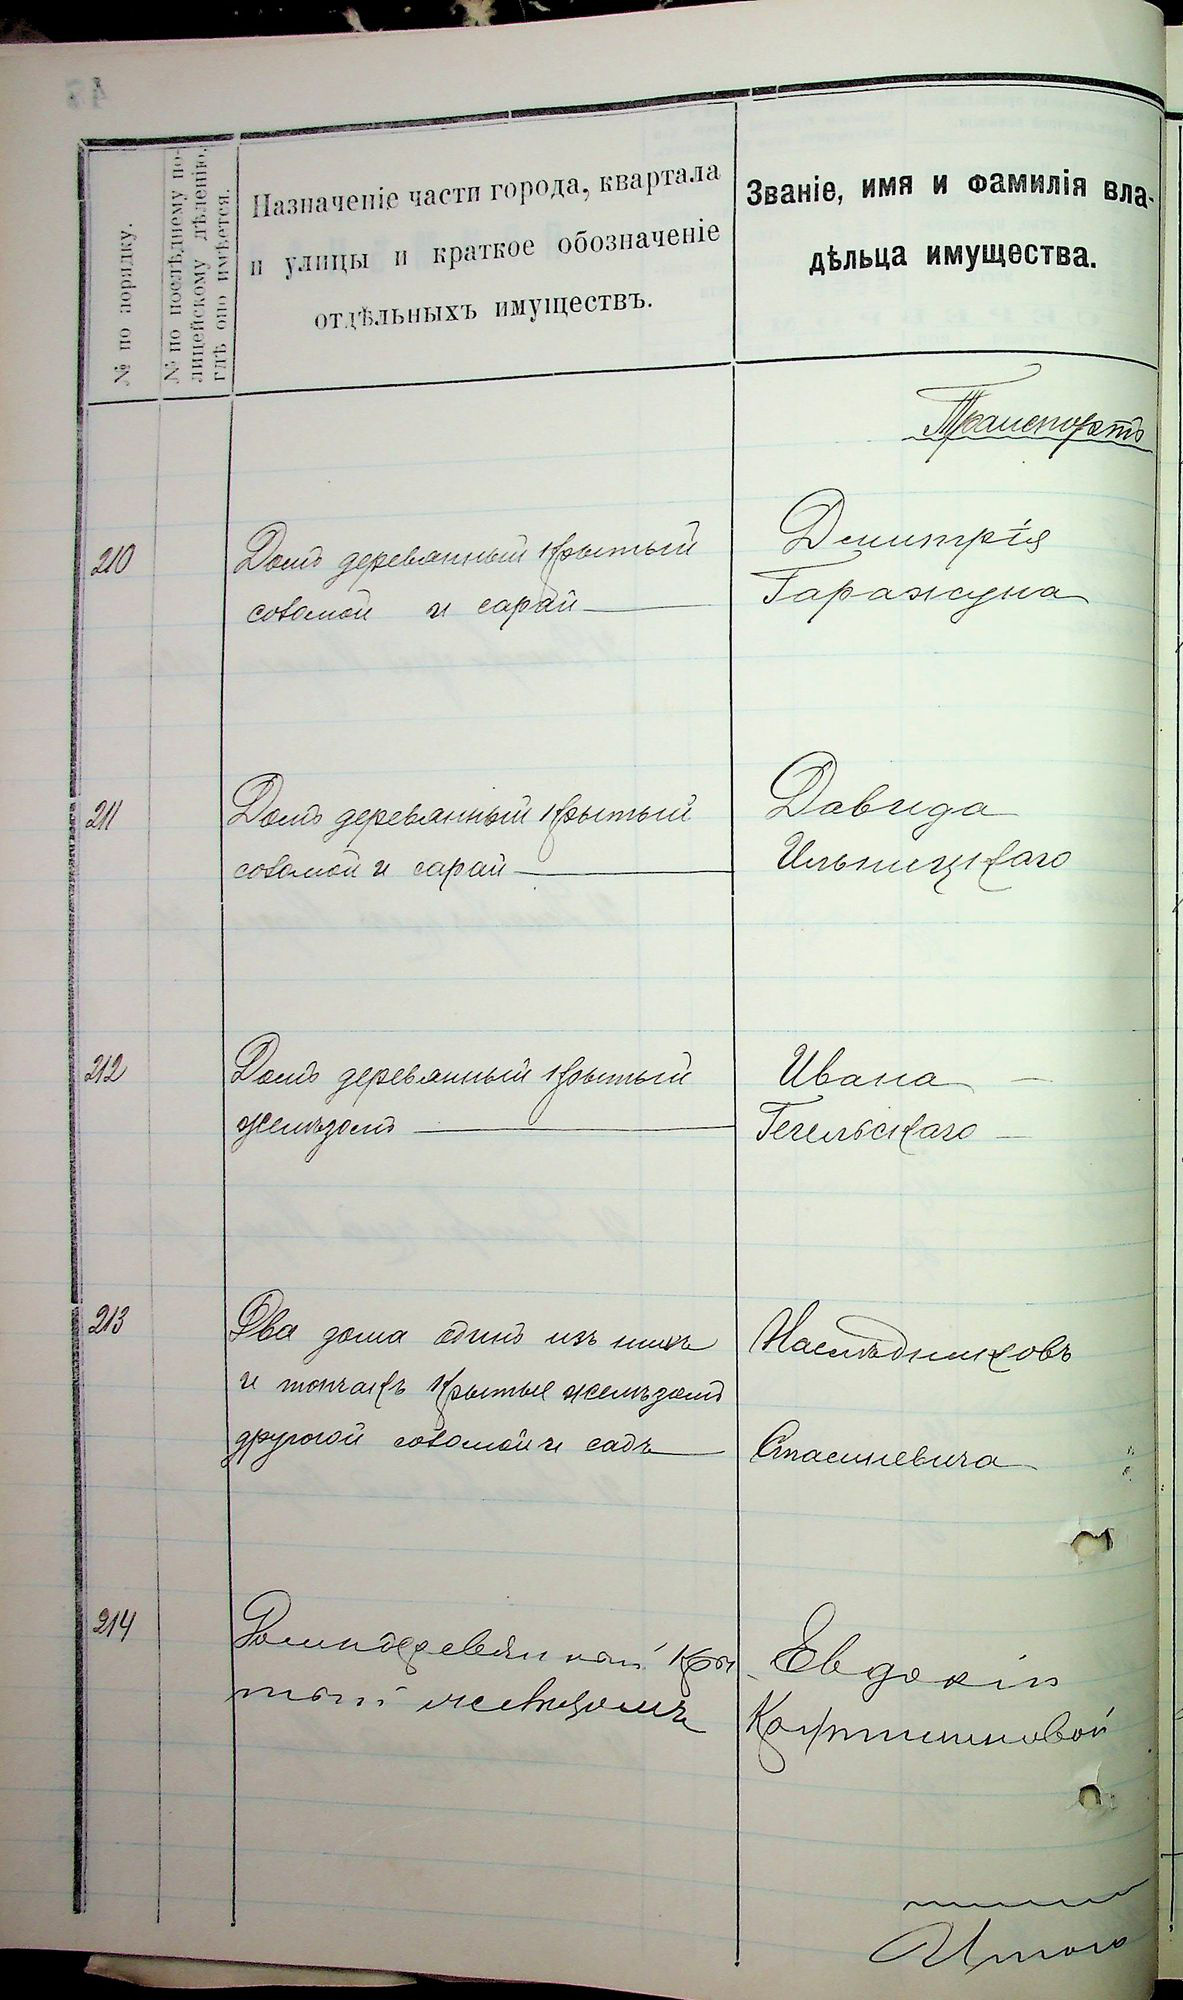 № по порядку.
№ по послѣднему по-
лицейскому дѣленію,
гдѣ оно имѣется.
Назначеніе части города, квартала
и улицы и краткое обозначеніе
отдѣльныхъ имуществъ.
Званіе, имя и фамилія вла-
дѣльца имущества.
Транспортъ
210
Домъ деревянный крытый
соломой и сарай
Димитрія
Гаражуна
211
Домъ деревянный крытый
соломой и сарай
Давида
Ильницкаго
212
Домъ деревянный крытый
желѣзомъ
Ивана
Гегельскаго
213
Два дома одинъ изъ нихъ
и топчакъ крытые желѣзомъ
другой соломой и садъ
Наслѣдниковъ
Стасиневича
214
Домъ деревянный кры
тый желѣзомъ
Евдокіи
Итого